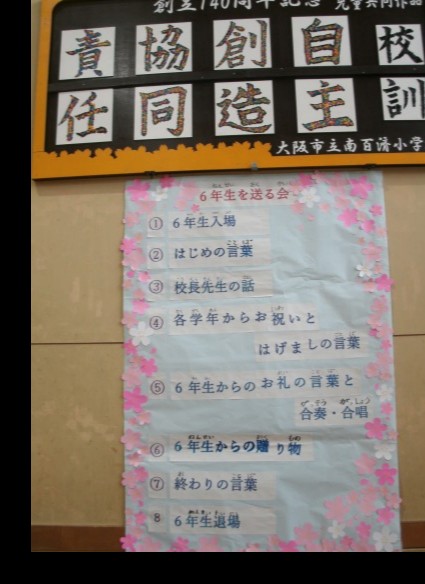 創立140周年記念 児童共同作品
校訓 自主 創造 協同 責任
大阪市立南百済小学
6年生を送る会
① 6年生入場
② はじめの言葉
③ 校長先生の話
④ 各学年からお祝いと
はげましの言葉
⑤ 6年生からのお礼の言葉と
合奏・合唱
⑥ 6年生からの贈り物
⑦ 終わりの言葉
8 6年生退場